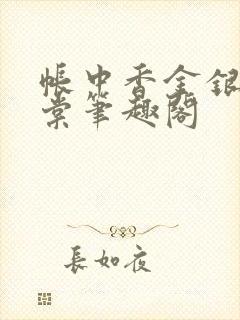 帳中香金銀
棠筆趣閣
長如夜